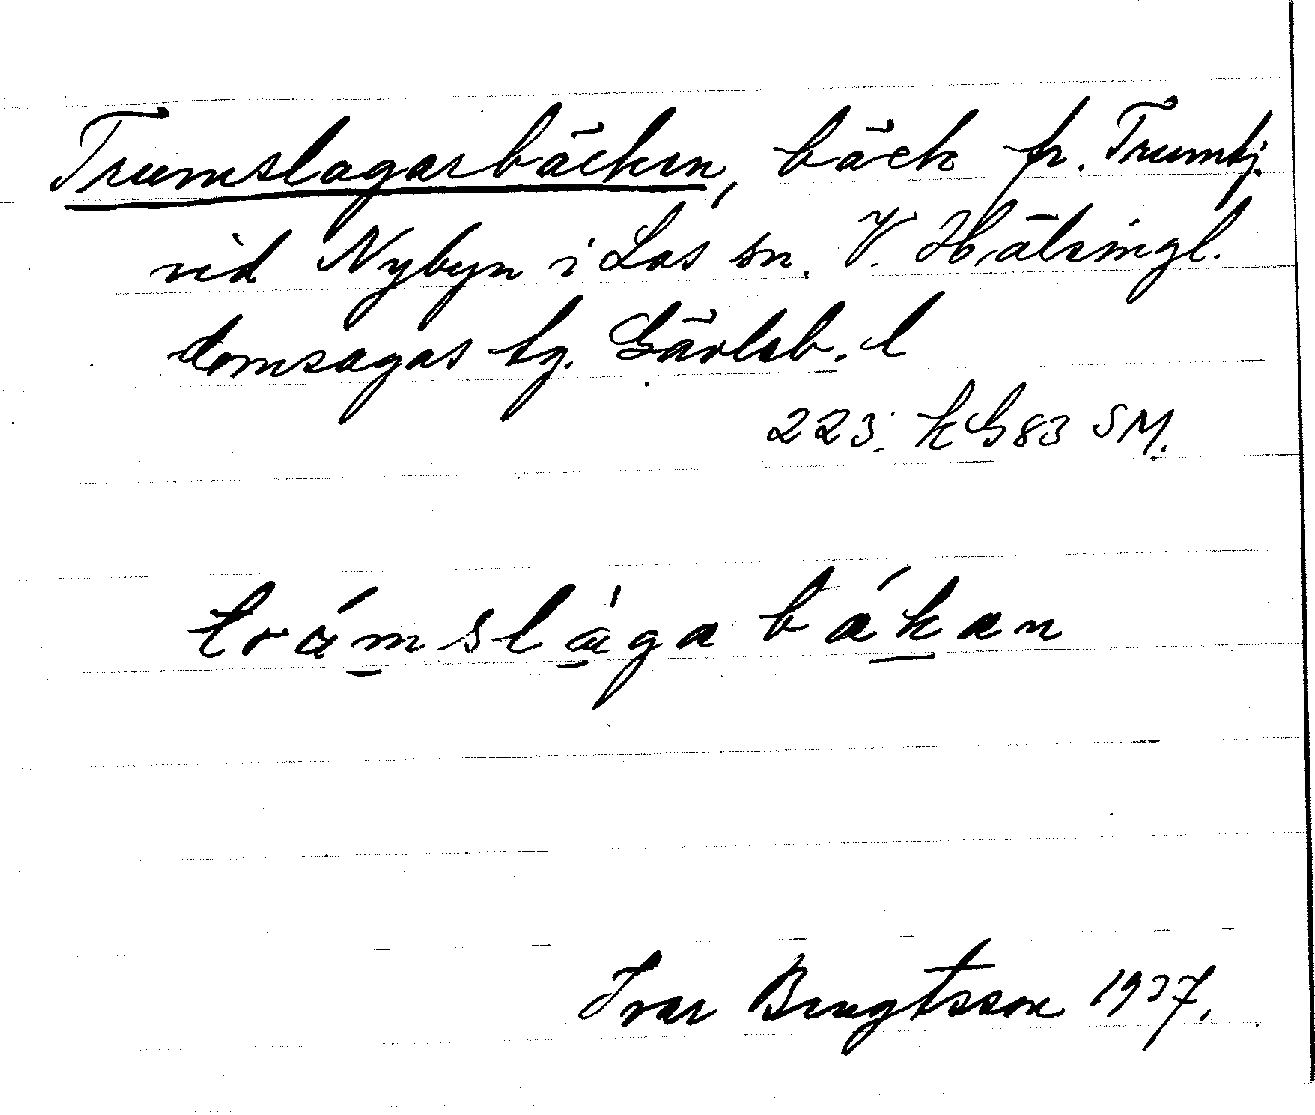 Trumslagarbäcken, bäck fr. Trumtj.
vid Nybyn i Los sn. V. Hälsingl.
domsagas tg. Gävleb. l
223. KG83 SM.
trámslàga bákan
Ivar Bengtsson 1937.